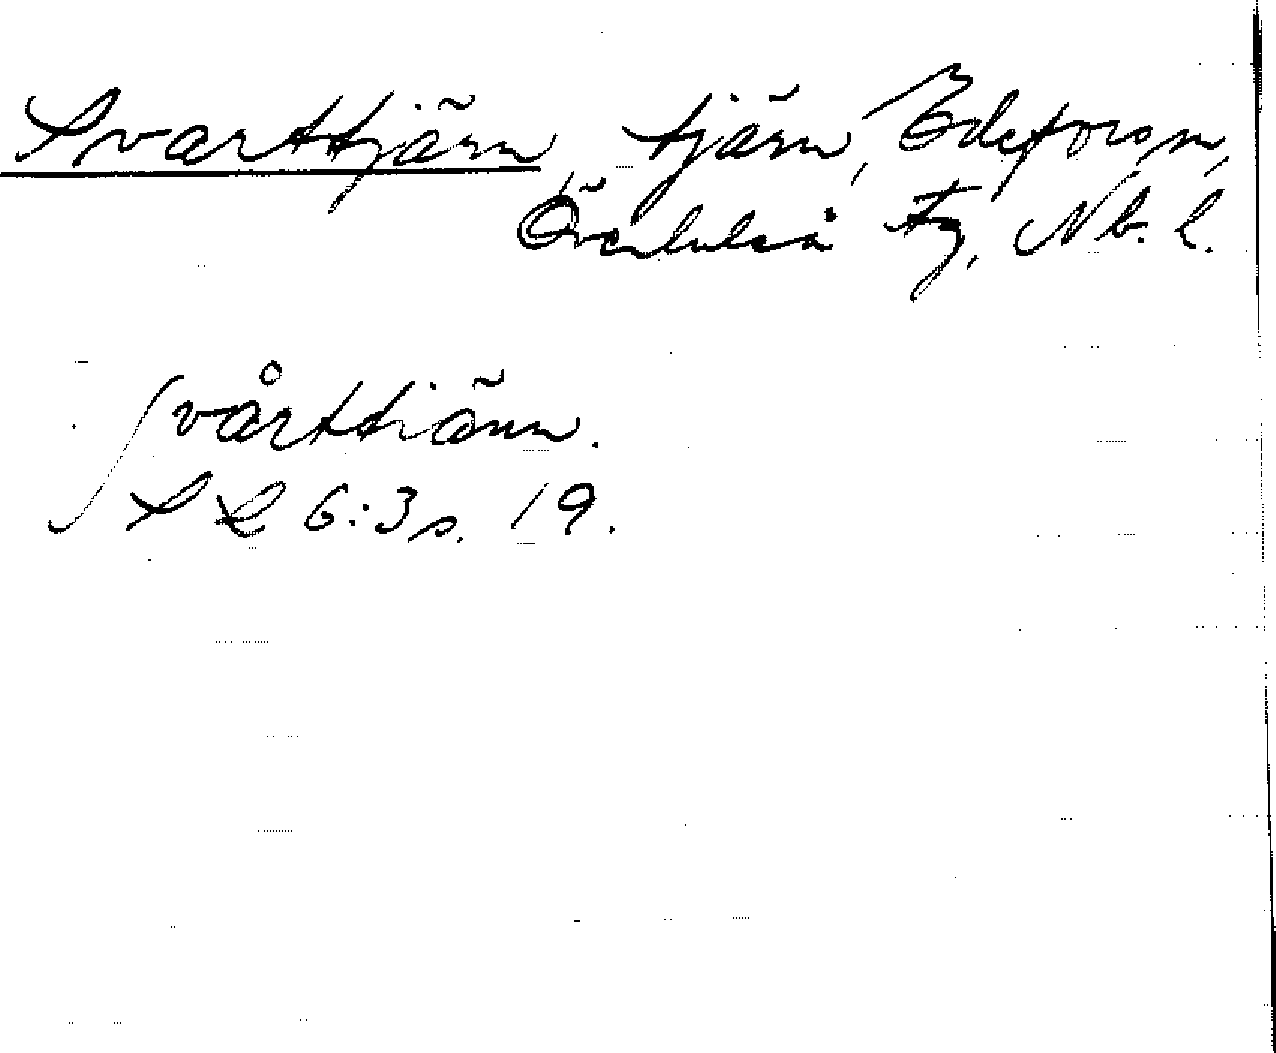 Svarttjärn tjärn, Edefors sn,
Överluleå tg, Nb. l.
Svårttiärn.
S L 6:3 s. 19.